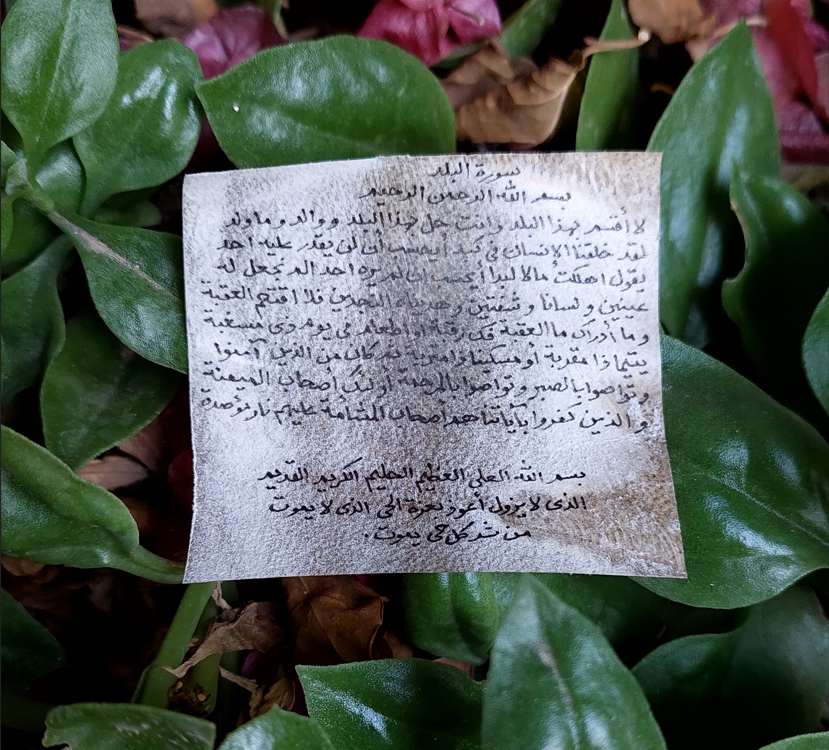 سورة البلد
بسم الله الرحمن الرحيم
لا أقسم بهذا البلد وانت حل بهذا البلد ووالد وما ولد
لقد خلقنا الانسان في كبد أيحسب أن لن يقدر عليه احد
يقول اهلكت مالا لبدا أيحسب ان لم يره احد الم نجعل له
عينين ولسانا وشفتين وهديناه النجدين فلا اقتحم العقبة
وما أدراك ما العقبة فك رقبة او اطعام في يوم ذي مسغبة
يتيما ذا مقربة او مسكينا ذا متربة ثم كان من الذين آمنوا
وتواصوا بالصبر وتواصوا بالمرحمة أولئك اصحاب الميمنة
والذين كفروا بآياتنا هم اصحاب المشأمة عليهم نار مؤصدة
بسم الله العلي العظيم الحليم الكريم القديم
الذى لا يزول أعوذ بعزة الحي الذى لا يموت
من شر كل حي يموت.